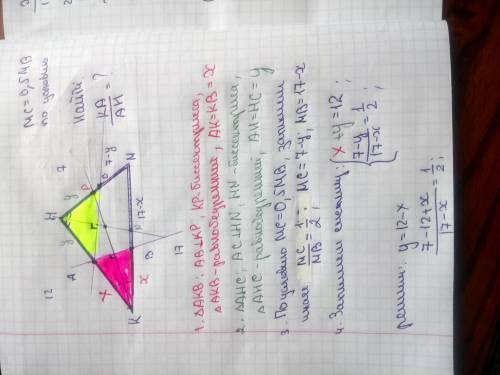 NC=0,5NB
по условию
Найти:
KA/AH = ?
12
7
17
H
A
P
C
N
B
K
y
y
7-y
x
x
17-x
1. △AKB: AB⊥KP, KP-биссектриса,
△AKB-равнобедренный, AK=KB=x
2. △AHC: AC⊥HN, HN-биссектриса,
△AHC-равнобедренный, AH=HC=y
3. По условию NC=0,5NB, запишем
иначе NC/NB = 1/2; NC=7-y; NB=17-x
4. Запишем систему: { x+y=12;
(7-y)/(17-x) = 1/2;
решим: y=12-x
(7-12+x)/(17-x) = 1/2;